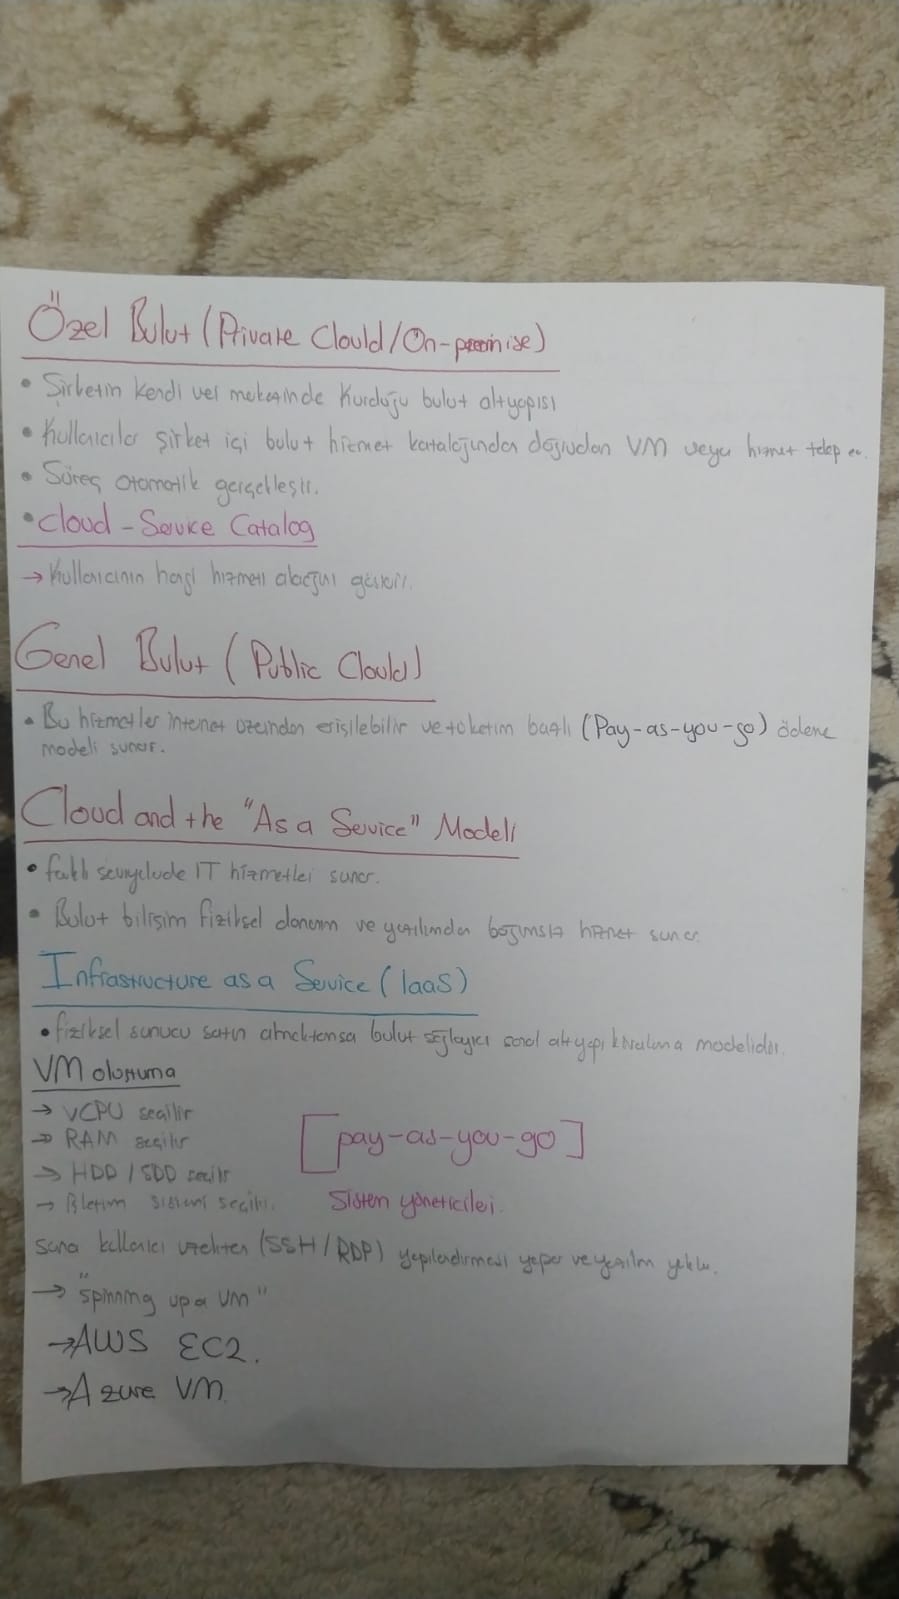 Özel Bulut (Private Clould/On-premise)
• Şirketin kendi veri merkezinde kurduğu bulut altyapısı
• Kullanıcılar şirket içi bulut hizmet kataloğundan doğrudan VM veya hizmet talep eder.
• Süreç otomatik gerçekleşir.
• Cloud - Service Catalog
→ Kullanıcının hangi hizmeti alacağını gösterir.
Genel Bulut (Public Clould)
• Bu hizmetler internet üzerinden erişilebilir ve tüketim bağlı (Pay-as-you-go) ödeme
modeli sunar.
Cloud and the "As a Service" Modeli
• farklı seviyelerde IT hizmetleri sunar.
• Bulut bilişim fiziksel donanım ve yazılımdan bağımsız hizmet sunar
Infrastructure as a Service (IaaS)
• fiziksel sunucu satın almaktansa bulut sağlayıcı sanal altyapı kiralama modelidir.
VM oluşturma
→ VCPU seçilir
→ RAM seçilir
[pay-as-you-go]
→ HDD / SDD seçilir
→ İşletim sistemi seçilir.
Sistem yöneticileri.
Sonra kullanıcı uzaktan (SSH/RDP) yapılandırması yapar ve yazılım yükler.
→ "spinning up a VM"
→ AWS EC2.
→ Azure VM